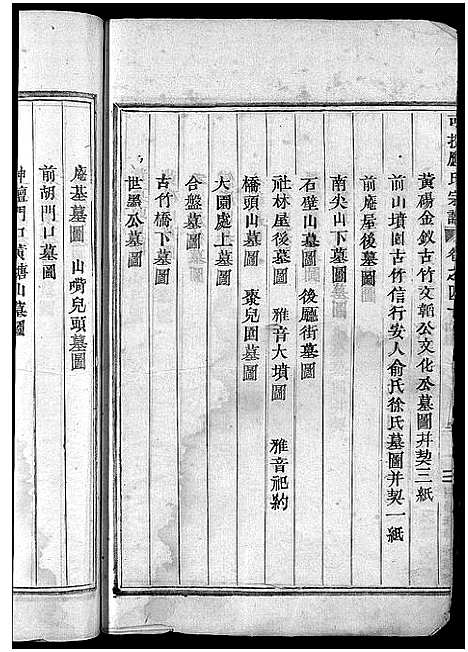 氏宗譜
黃楊金釵古竹文韜公文化公墓圖幷契三紙
前山墳園古竹信行安人俞氏徐氏墓圖幷契一紙
前庵屋後墓圖
南尖山下墓圖
石壁山墓圖 後廳街墓圖
社林屋後墓圖 雅音大墳圖 雅音祀約
橋頭山墓圖 棗兒園墓圖
大園處上墓圖
合盤墓圖
古竹橋下墓圖
世墨公墓圖
庵基墓圖 山嘴兒頭墓圖
前胡門口墓圖
神壇門口黃塘山墓圖